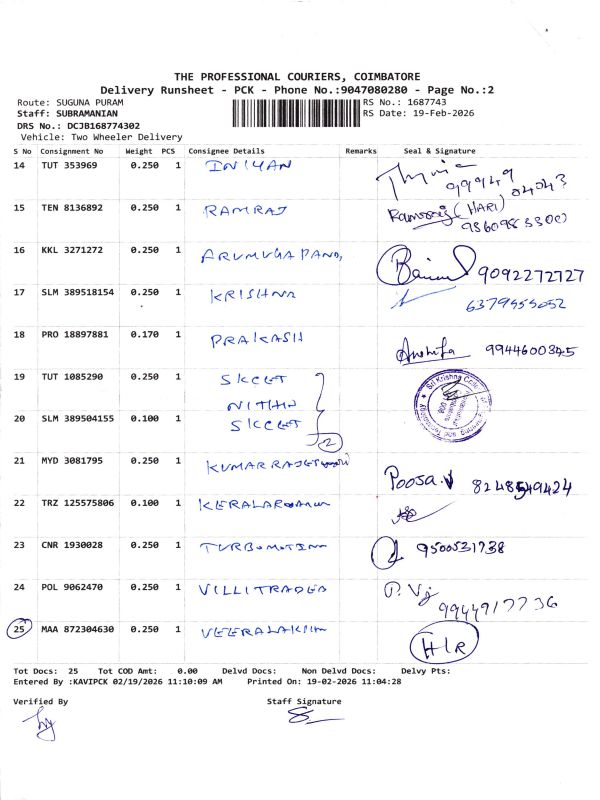 THE PROFESSIONAL COURIERS, COIMBATORE
Delivery Runsheet - PCK - Phone No.:9047080280 - Page No.:2
Route: SUGUNA PURAM RS No.: 1687743
Staff: SUBRAMANIAN RS Date: 19-Feb-2026
DRS No.: DCJB168774302
Vehicle: Two Wheeler Delivery
S No Consignment No Weight PCS Consignee Details Remarks Seal & Signature
14 TUT 353969 0.250 1 INIYAN 99949 04043
15 TEN 8136892 0.250 1 RAMRAJ Ramraj (HARI)
16 KKL 3271272 0.250 1 ARUMUGA 9092272727
17 SLM 389518154 0.250 1 KRISHNA
18 PRO 18897881 0.170 1 PRAKASH 9944600345
19 TUT 1085290 0.250 1 SKCET
NITHIN
20 SLM 389504155 0.100 1 SKCET 2
Sri Krishna College of
21 MYD 3081795 0.250 1 Poosa
22 TRZ 125575806 0.100 1
23 CNR 1930028 0.250 1 9500531738
24 POL 9062470 0.250 1
25 MAA 872304630 0.250 1
Tot Docs: 25 Tot COD Amt: 0.00 Delvd Docs: Non Delvd Docs: Delvy Pts:
Entered By :KAVIPCK 02/19/2026 11:10:09 AM Printed On: 19-02-2026 11:04:28
Verified By Staff Signature